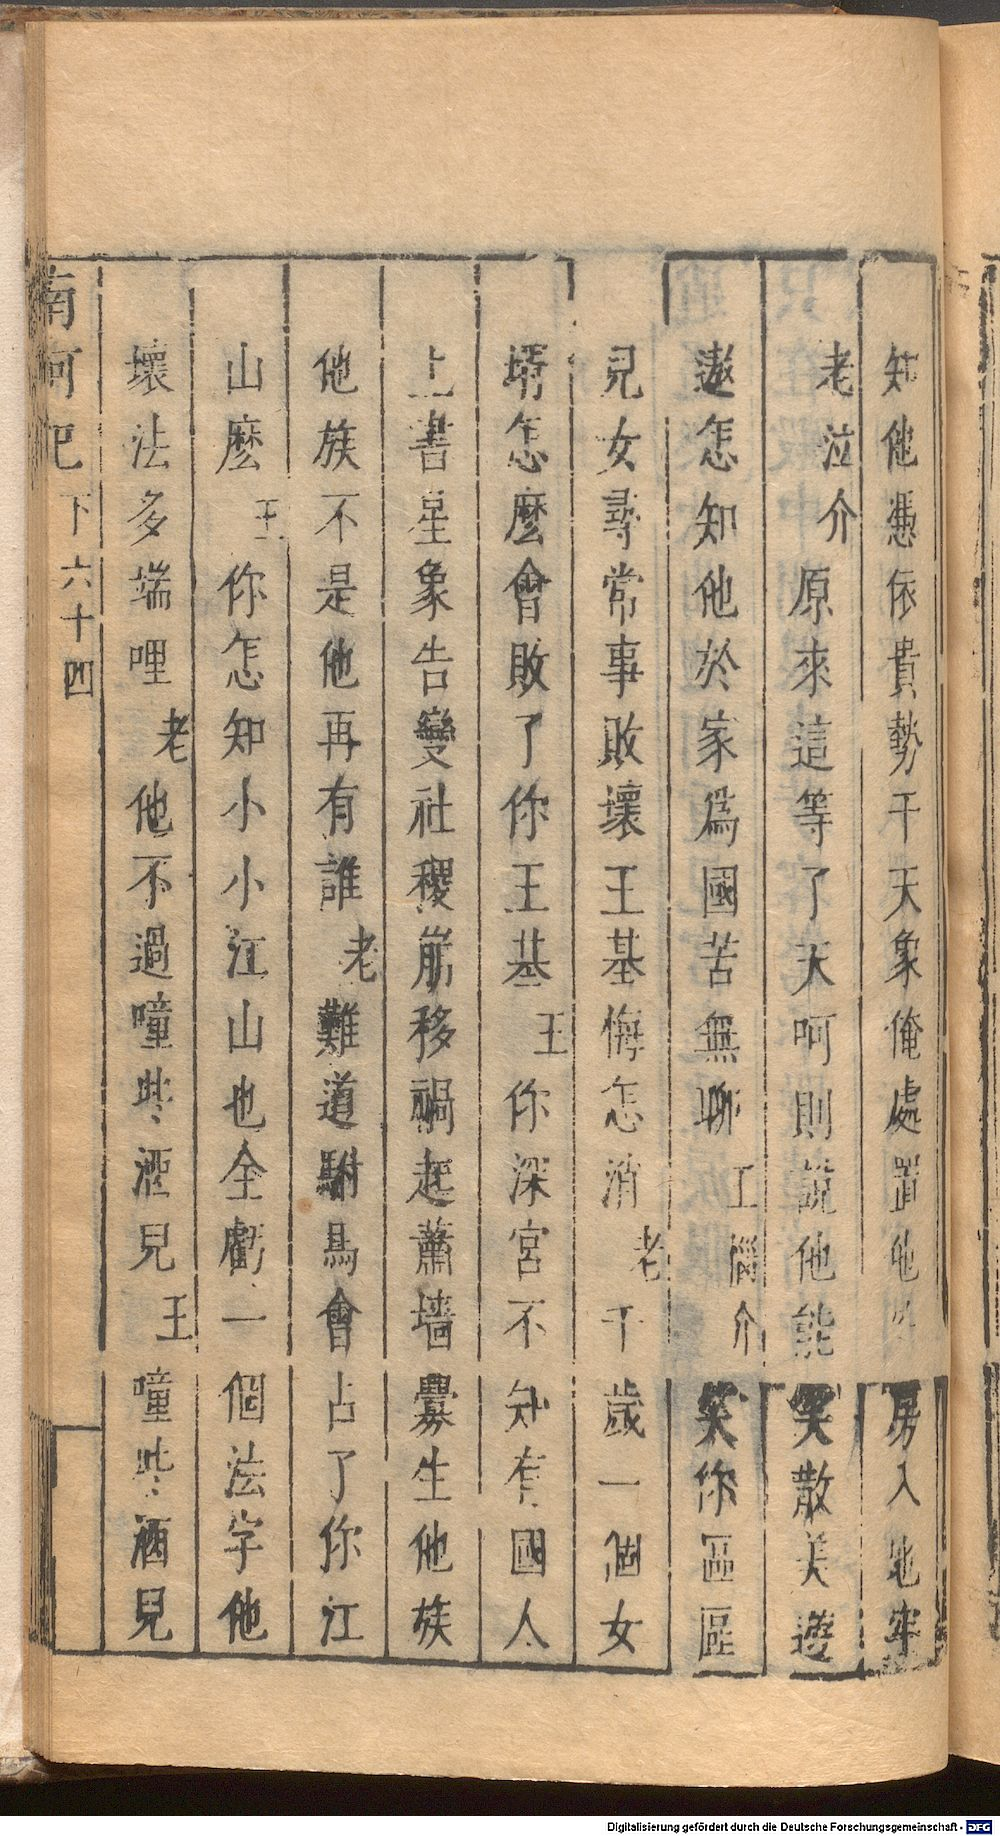 知他憑依貴勢干天象俺處置他外房入地牢
老泣介原來這等了天呵則說他能笑散美遊
遨怎知他於家爲國苦無聊王惱介笑你區區
兒女尋常事敗壞王基悔怎消老千歲一個女
壻怎麼會敗了你王基王你深宮不知有國人
上書星象告變社稷崩移禍起蕭墻釁生他族
他族不是他再有誰老難道駙馬會占了你江
山麼王你怎知小小江山也全虧一個法字他
壞法多端哩老他不過噇些酒兒王噇些酒兒
南柯記
下六十四
Digitalisierung gefördert durch die Deutsche Forschungsgemeinschaft - DFG